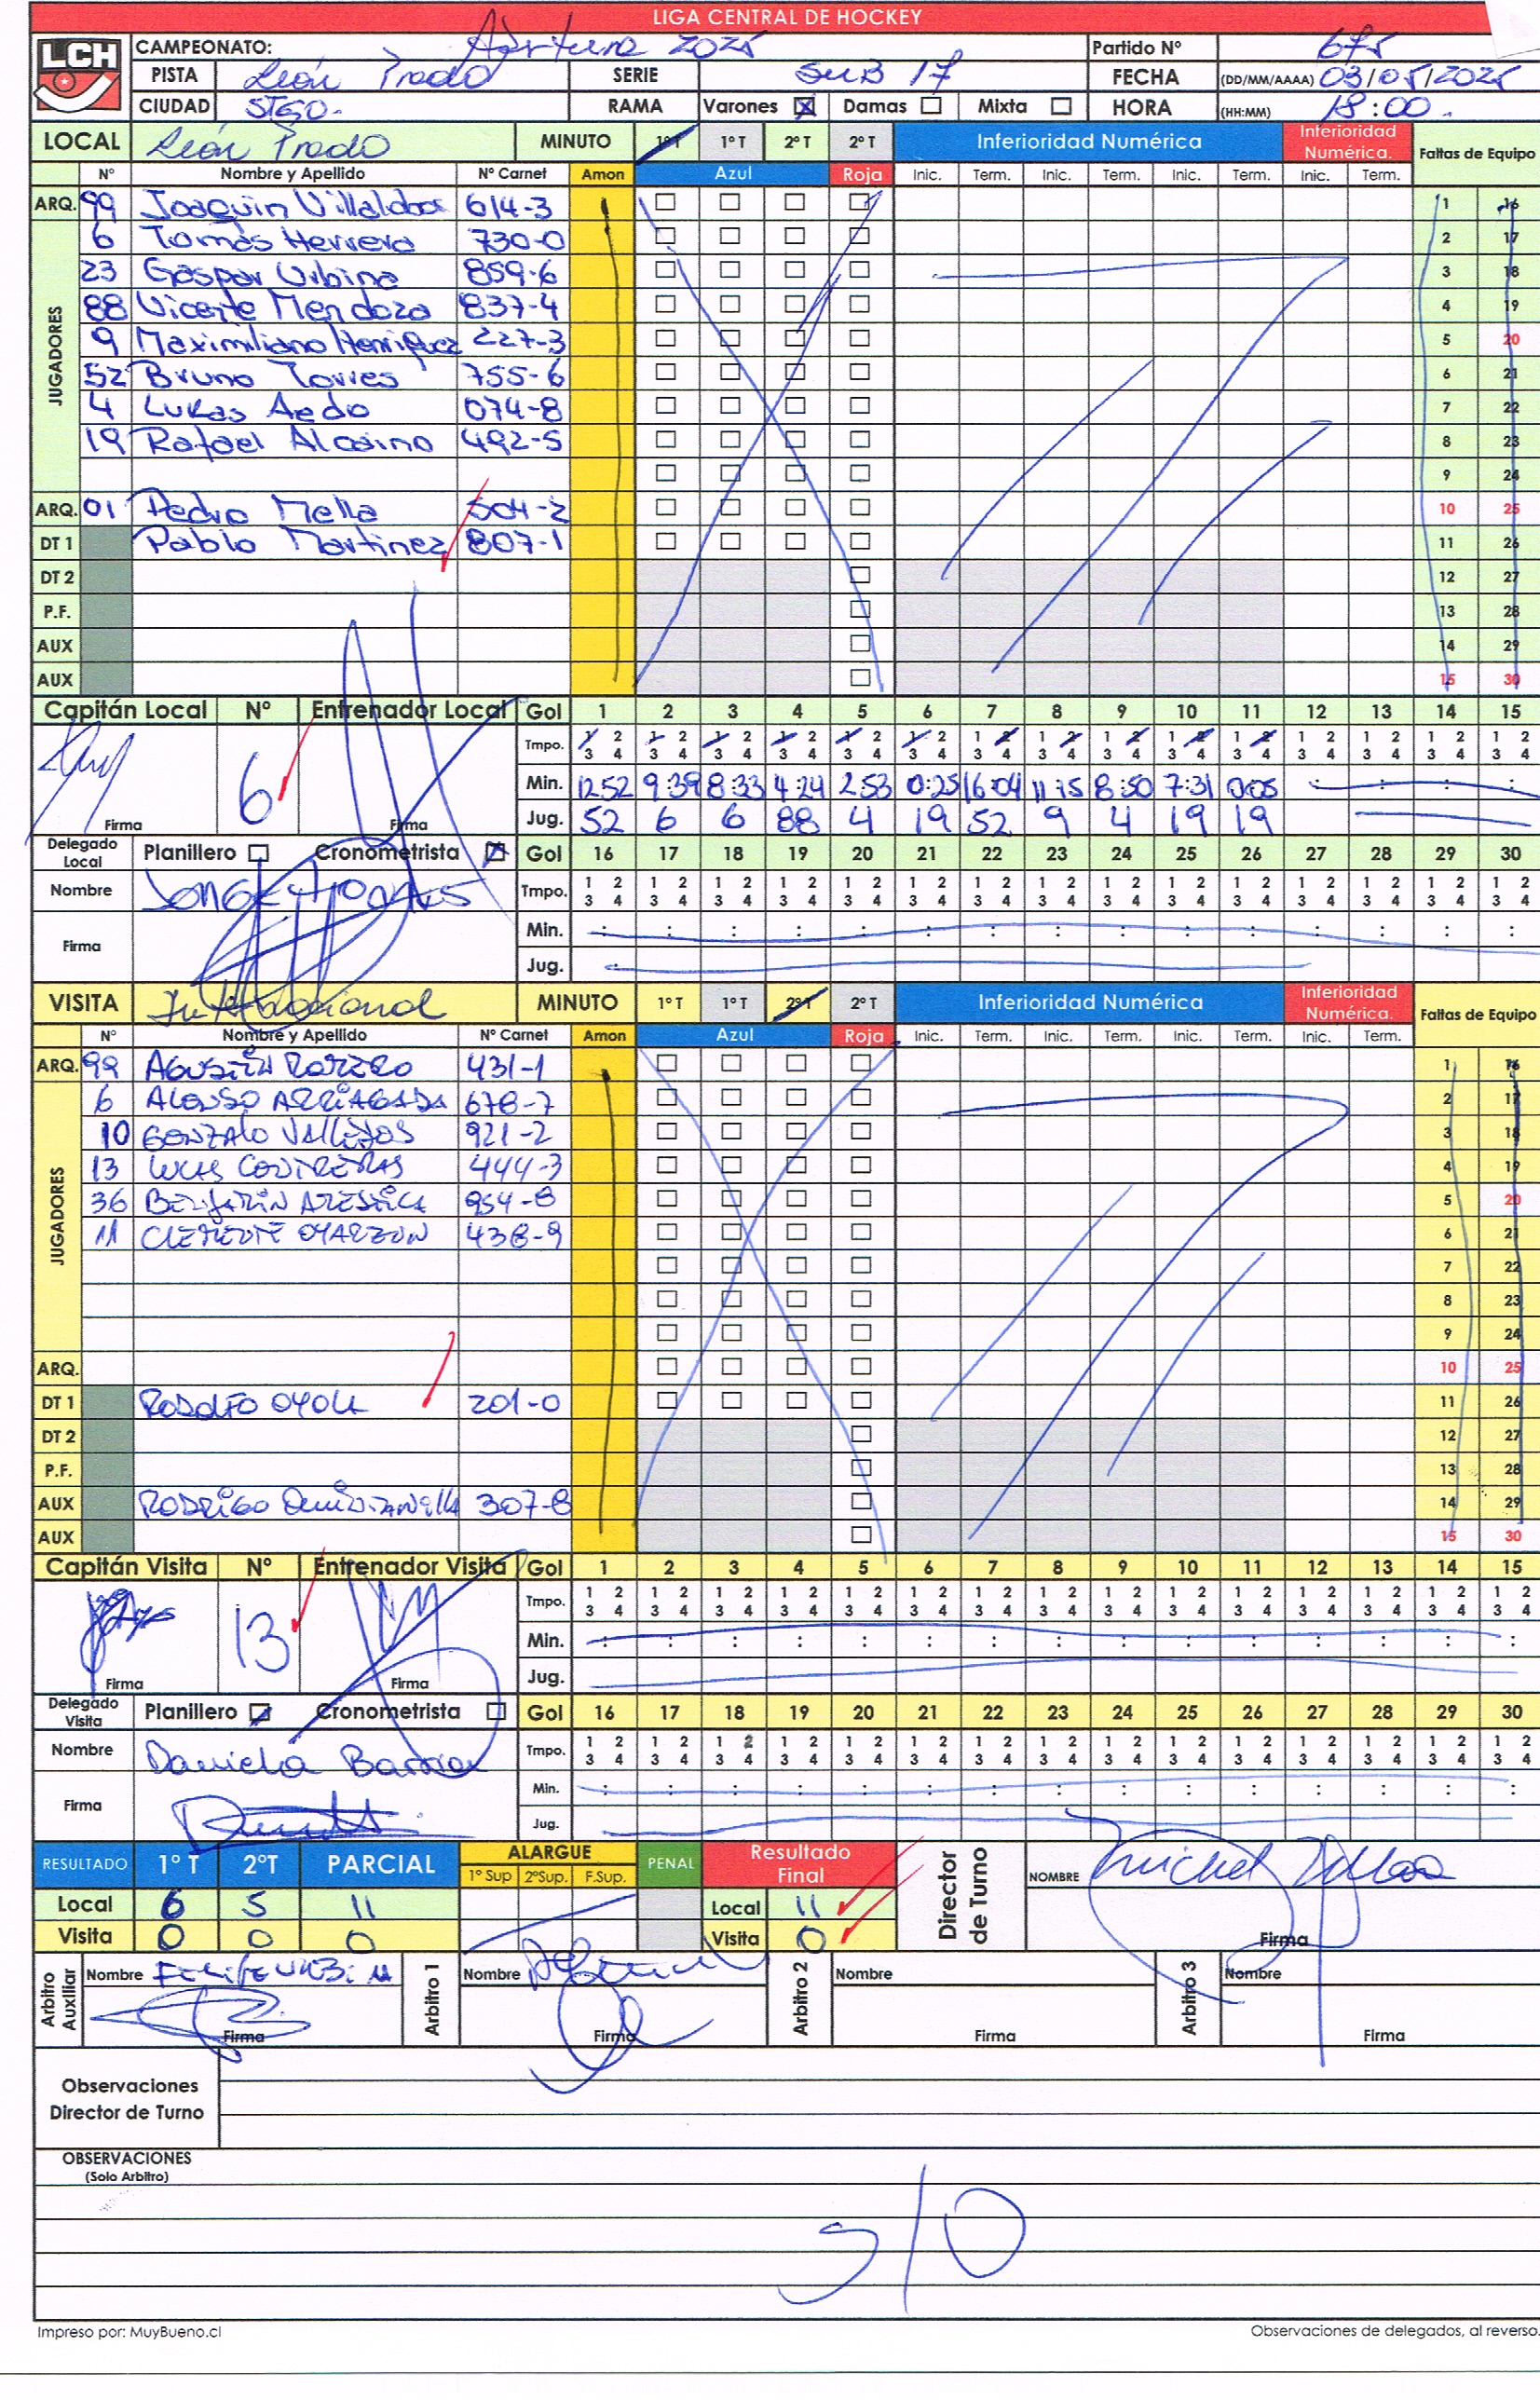 LIGA CENTRAL DE HOCKEY
LCH
CAMPEONATO: Apertura 2025 Partido Nº 675
PISTA León Prado SERIE SUB 17 FECHA (DD/MM/AAAA) 03/05/2025
CIUDAD STGO. RAMA Varones Damas Mixta HORA (HH:MM) 18:00.
LOCAL León Prado MINUTO 1º T 1º T 2º T 2º T Inferioridad Numérica Inferioridad Numérica. Faltas de Equipo
Nº Nombre y Apellido Nº Carnet Amon Azul Roja Inic. Term. Inic. Term. Inic. Term. Inic. Term.
ARQ. 99 Joaquin Villalobos 614-3 1 16
JUGADORES
6 Tomás Herrera 730-0 2 17
23 Gaspar Urbina 859-6 3 18
88 Vicente Mendoza 837-4 4 19
9 Maximiliano Henriquez 227-3 5 20
52 Bruno Torres 755-6 6 21
4 Lukas Aedo 074-8 7 22
19 Rafael Alcaino 492-5 8 23
9 24
ARQ. 01 Pedro Mella 504-2 10 25
DT 1 Pablo Martinez 807-1 11 26
DT 2 12 27
P.F. 13 28
AUX 14 29
AUX 15 30
Capitán Local Nº Entrenador Local Gol 1 2 3 4 5 6 7 8 9 10 11 12 13 14 15
Tmpo. 1 2 1 2 1 2 1 2 1 2 1 2 1 2 1 2 1 2 1 2 1 2 1 2 1 2 1 2 1 2
3 4 3 4 3 4 3 4 3 4 3 4 3 4 3 4 3 4 3 4 3 4 3 4 3 4 3 4 3 4
6 Min. 12:52 9:39 8:33 4:24 2:53 0:25 16:04 11:15 8:50 7:31 0:05 : : : :
Firma Firma Jug. 52 6 6 88 4 19 52 9 4 19 19
Delegado Local Planillero Cronometrista Gol 16 17 18 19 20 21 22 23 24 25 26 27 28 29 30
Nombre Tmpo. 1 2 1 2 1 2 1 2 1 2 1 2 1 2 1 2 1 2 1 2 1 2 1 2 1 2 1 2 1 2
3 4 3 4 3 4 3 4 3 4 3 4 3 4 3 4 3 4 3 4 3 4 3 4 3 4 3 4 3 4
Firma Min. : : : : : : : : : : : : : : :
Jug.
VISITA Internacional MINUTO 1º T 1º T 2º T 2º T Inferioridad Numérica Inferioridad Numérica. Faltas de Equipo
Nº Nombre y Apellido Nº Carnet Amon Azul Roja Inic. Term. Inic. Term. Inic. Term. Inic. Term.
ARQ. 99 AGUSTÍN ROMERO 431-1 1 16
JUGADORES
6 ALONSO ARRIAGADA 678-7 2 17
10 GONZALO VALLEJOS 921-2 3 18
13 LUCAS CONTRERAS 444-3 4 19
36 BENJAMÍN 954-8 5 20
11 CLEMENTE OYARZUN 438-9 6 21
7 22
8 23
9 24
ARQ. 10 25
DT 1 RODOLFO OYOLA 201-0 11 26
DT 2 12 27
P.F. 13 28
AUX RODRIGO QUINTANILLA 307-8 14 29
AUX 15 30
Capitán Visita Nº Entrenador Visita Gol 1 2 3 4 5 6 7 8 9 10 11 12 13 14 15
Tmpo. 1 2 1 2 1 2 1 2 1 2 1 2 1 2 1 2 1 2 1 2 1 2 1 2 1 2 1 2 1 2
3 4 3 4 3 4 3 4 3 4 3 4 3 4 3 4 3 4 3 4 3 4 3 4 3 4 3 4 3 4
13 Min. : : : : : : : : : : : : : : :
Firma Firma Jug.
Delegado Visita Planillero Cronometrista Gol 16 17 18 19 20 21 22 23 24 25 26 27 28 29 30
Nombre Daniela Barrios Tmpo. 1 2 1 2 1 2 1 2 1 2 1 2 1 2 1 2 1 2 1 2 1 2 1 2 1 2 1 2 1 2
3 4 3 4 3 4 3 4 3 4 3 4 3 4 3 4 3 4 3 4 3 4 3 4 3 4 3 4 3 4
Firma Min. : : : : : : : : : : : : : : :
Jug.
RESULTADO 1º T 2ºT PARCIAL ALARGUE 1º Sup 2ºSup. F.Sup. PENAL Resultado Final Director de Turno NOMBRE Michel
Local 6 5 11 Local 11
Visita 0 0 0 Visita 0 Firma
Arbitro Auxiliar Nombre FELIPE Arbitro 1 Nombre Arbitro 2 Nombre Arbitro 3 Nombre
Firma Firma Firma Firma
Observaciones
Director de Turno
OBSERVACIONES
(Solo Arbitro)
S/O
Impreso por: MuyBueno.cl Observaciones de delegados, al reverso.